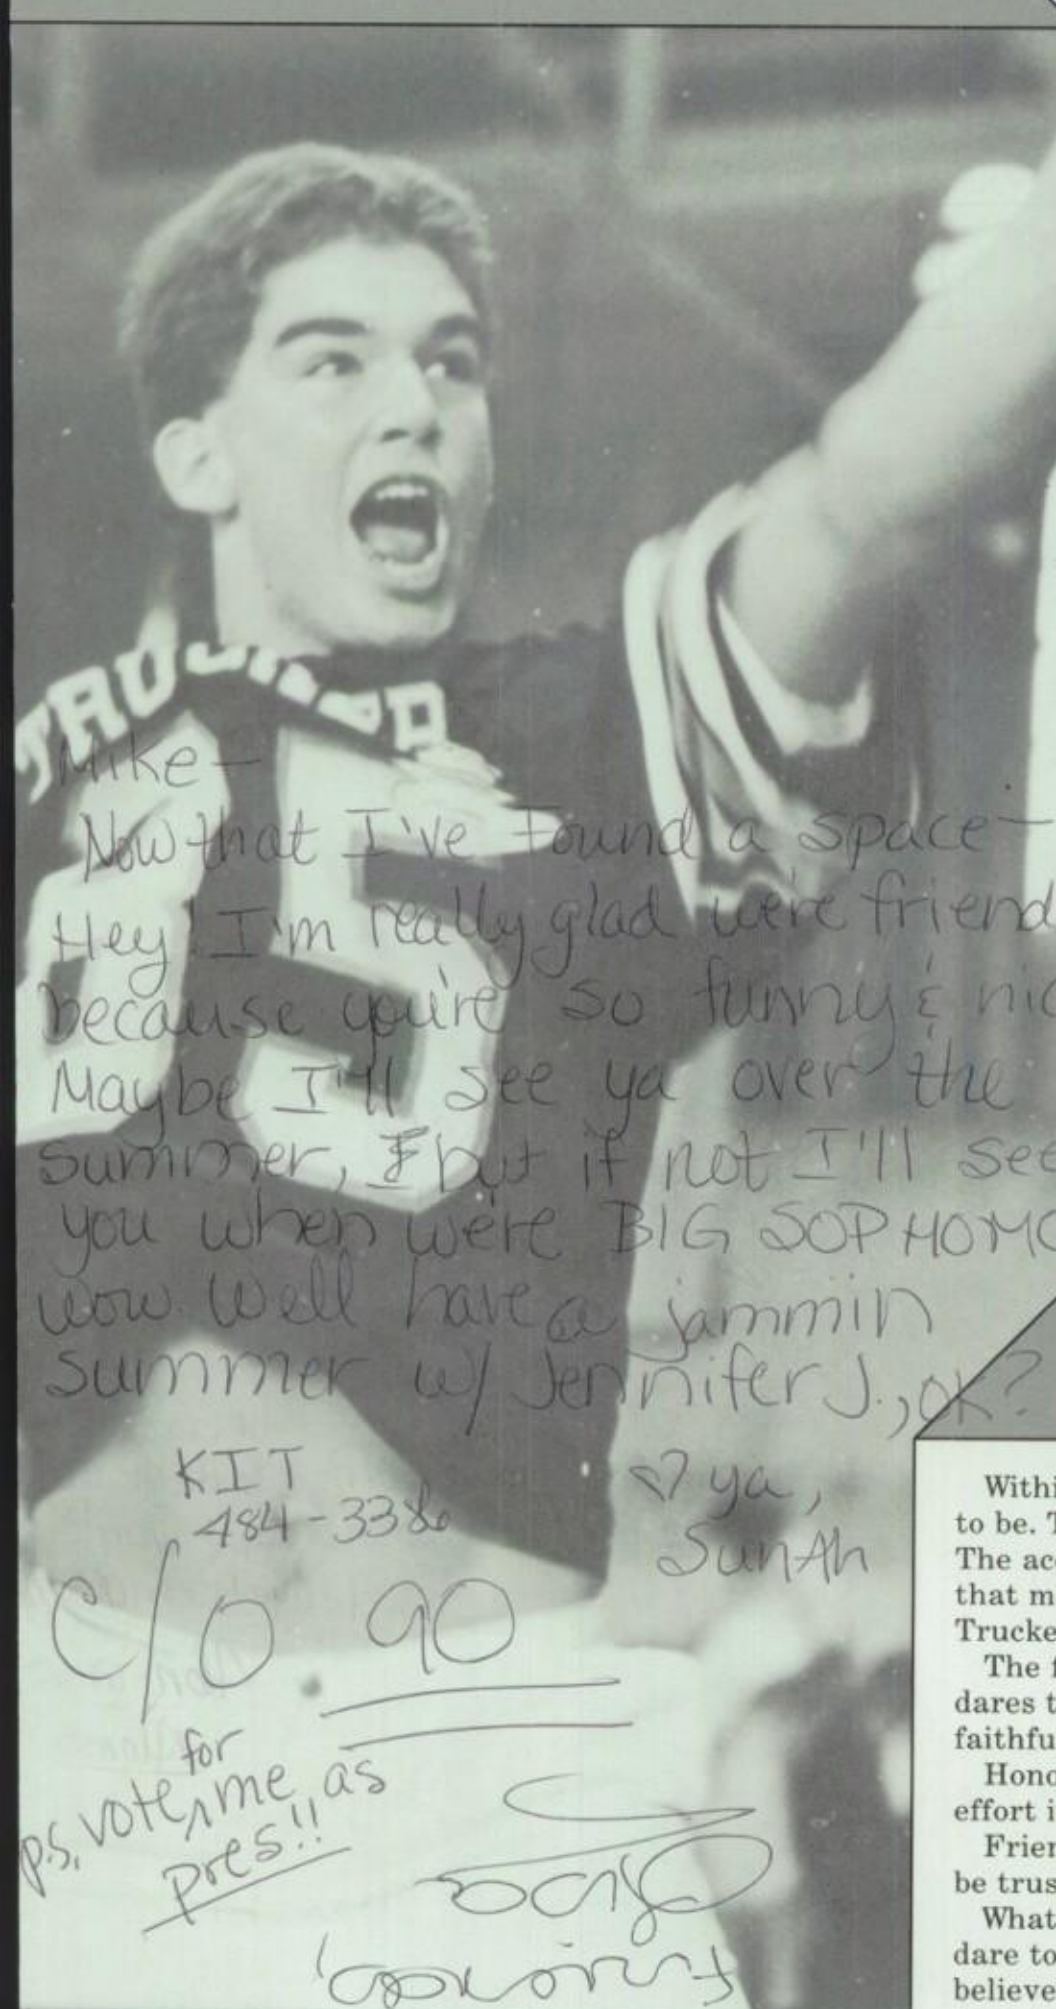 TRUCKER
25
Mike-
Now that I've found a space-
Hey! I'm really glad we're friend
because you're so funny & nic
Maybe I'll see ya over the
summer, but if not I'll see
you when we're BIG SOPHOMO
wow. Well have a jammin
summer w/ Jennifer J., ok?
KIT
484-3386
♡ ya,
SunAh
C/O 90
p.s. vote for me as
pres!!
Withi
to be. T
The acc
that m
Trucke
The f
dares t
faithfu
Hono
effort i
Frien
be trus
What
dare to
believe